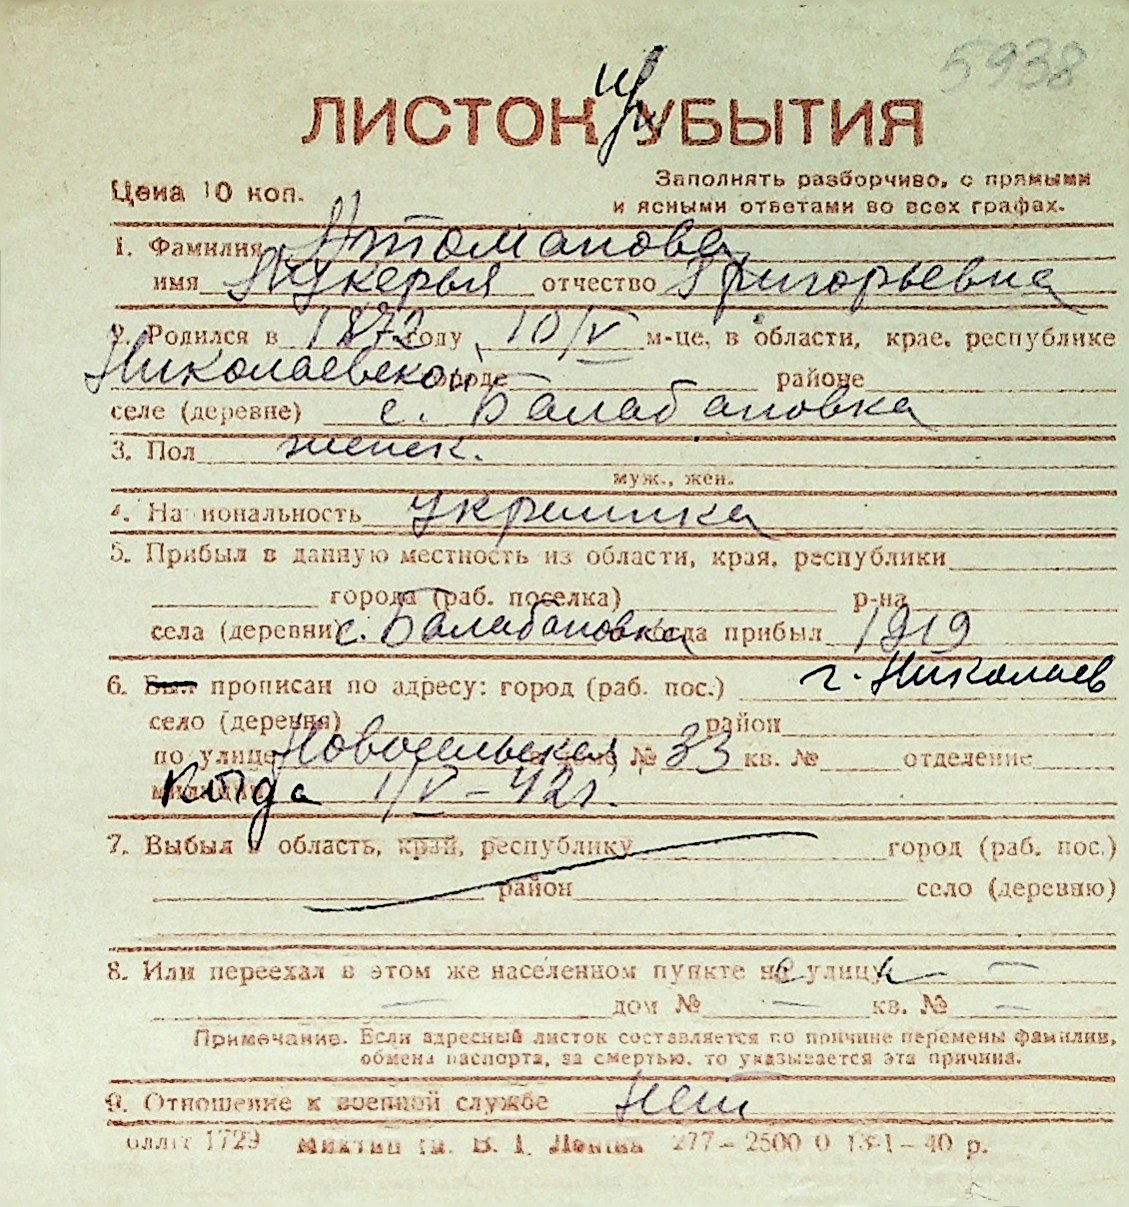 5938
ЛИСТОК при УБЫТИЯ
Цена 10 коп.
Заполнять разборчиво, с прямыми
и ясными ответами во всех графах.
1. Фамилия Отоманова
имя Лукерья отчество Григорьевна
2. Родился в 1872 году 10/V м-це, в области, крае, республике
Николаевской городе — районе
селе (деревне) с. Балабановка
3. Пол женск.
муж., жен.
4. Национальность украинка
5. Прибыл в данную местность из области, края, республики
города (раб. поселка) р-на
села (деревни) с. Балабановка когда прибыл 1919
6. Был прописан по адресу: город (раб. пос.) г. Николаев
село (деревня) район
по улице Новосельская дом № 33 кв. № отделение
милиции Когда 1/V-42г.
7. Выбыл в область, край, республику город (раб. пос.)
район село (деревню)
8. Или переехал в этом же населенном пункте на улицу —
— дом № — кв. № —
Примечание. Если адресный листок составляется по причине перемены фамилии,
обмена паспорта, за смертью, то указывается эта причина.
9. Отношение к военной службе Нет
1729 В. І. Леніна 277—2500 0 13-1-40 р.